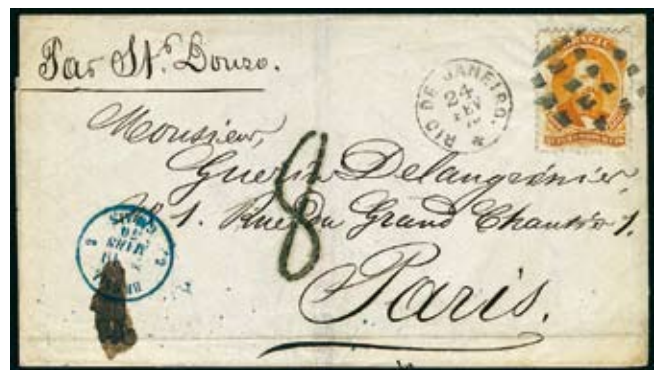 Par Str. Douro.
BRAZIL
RIO DE JANEIRO.
24
FEV
Monsieur,
Guerin Delangrénier,
1. Rue du Grand Chantier 1.
8
MARS
Paris.